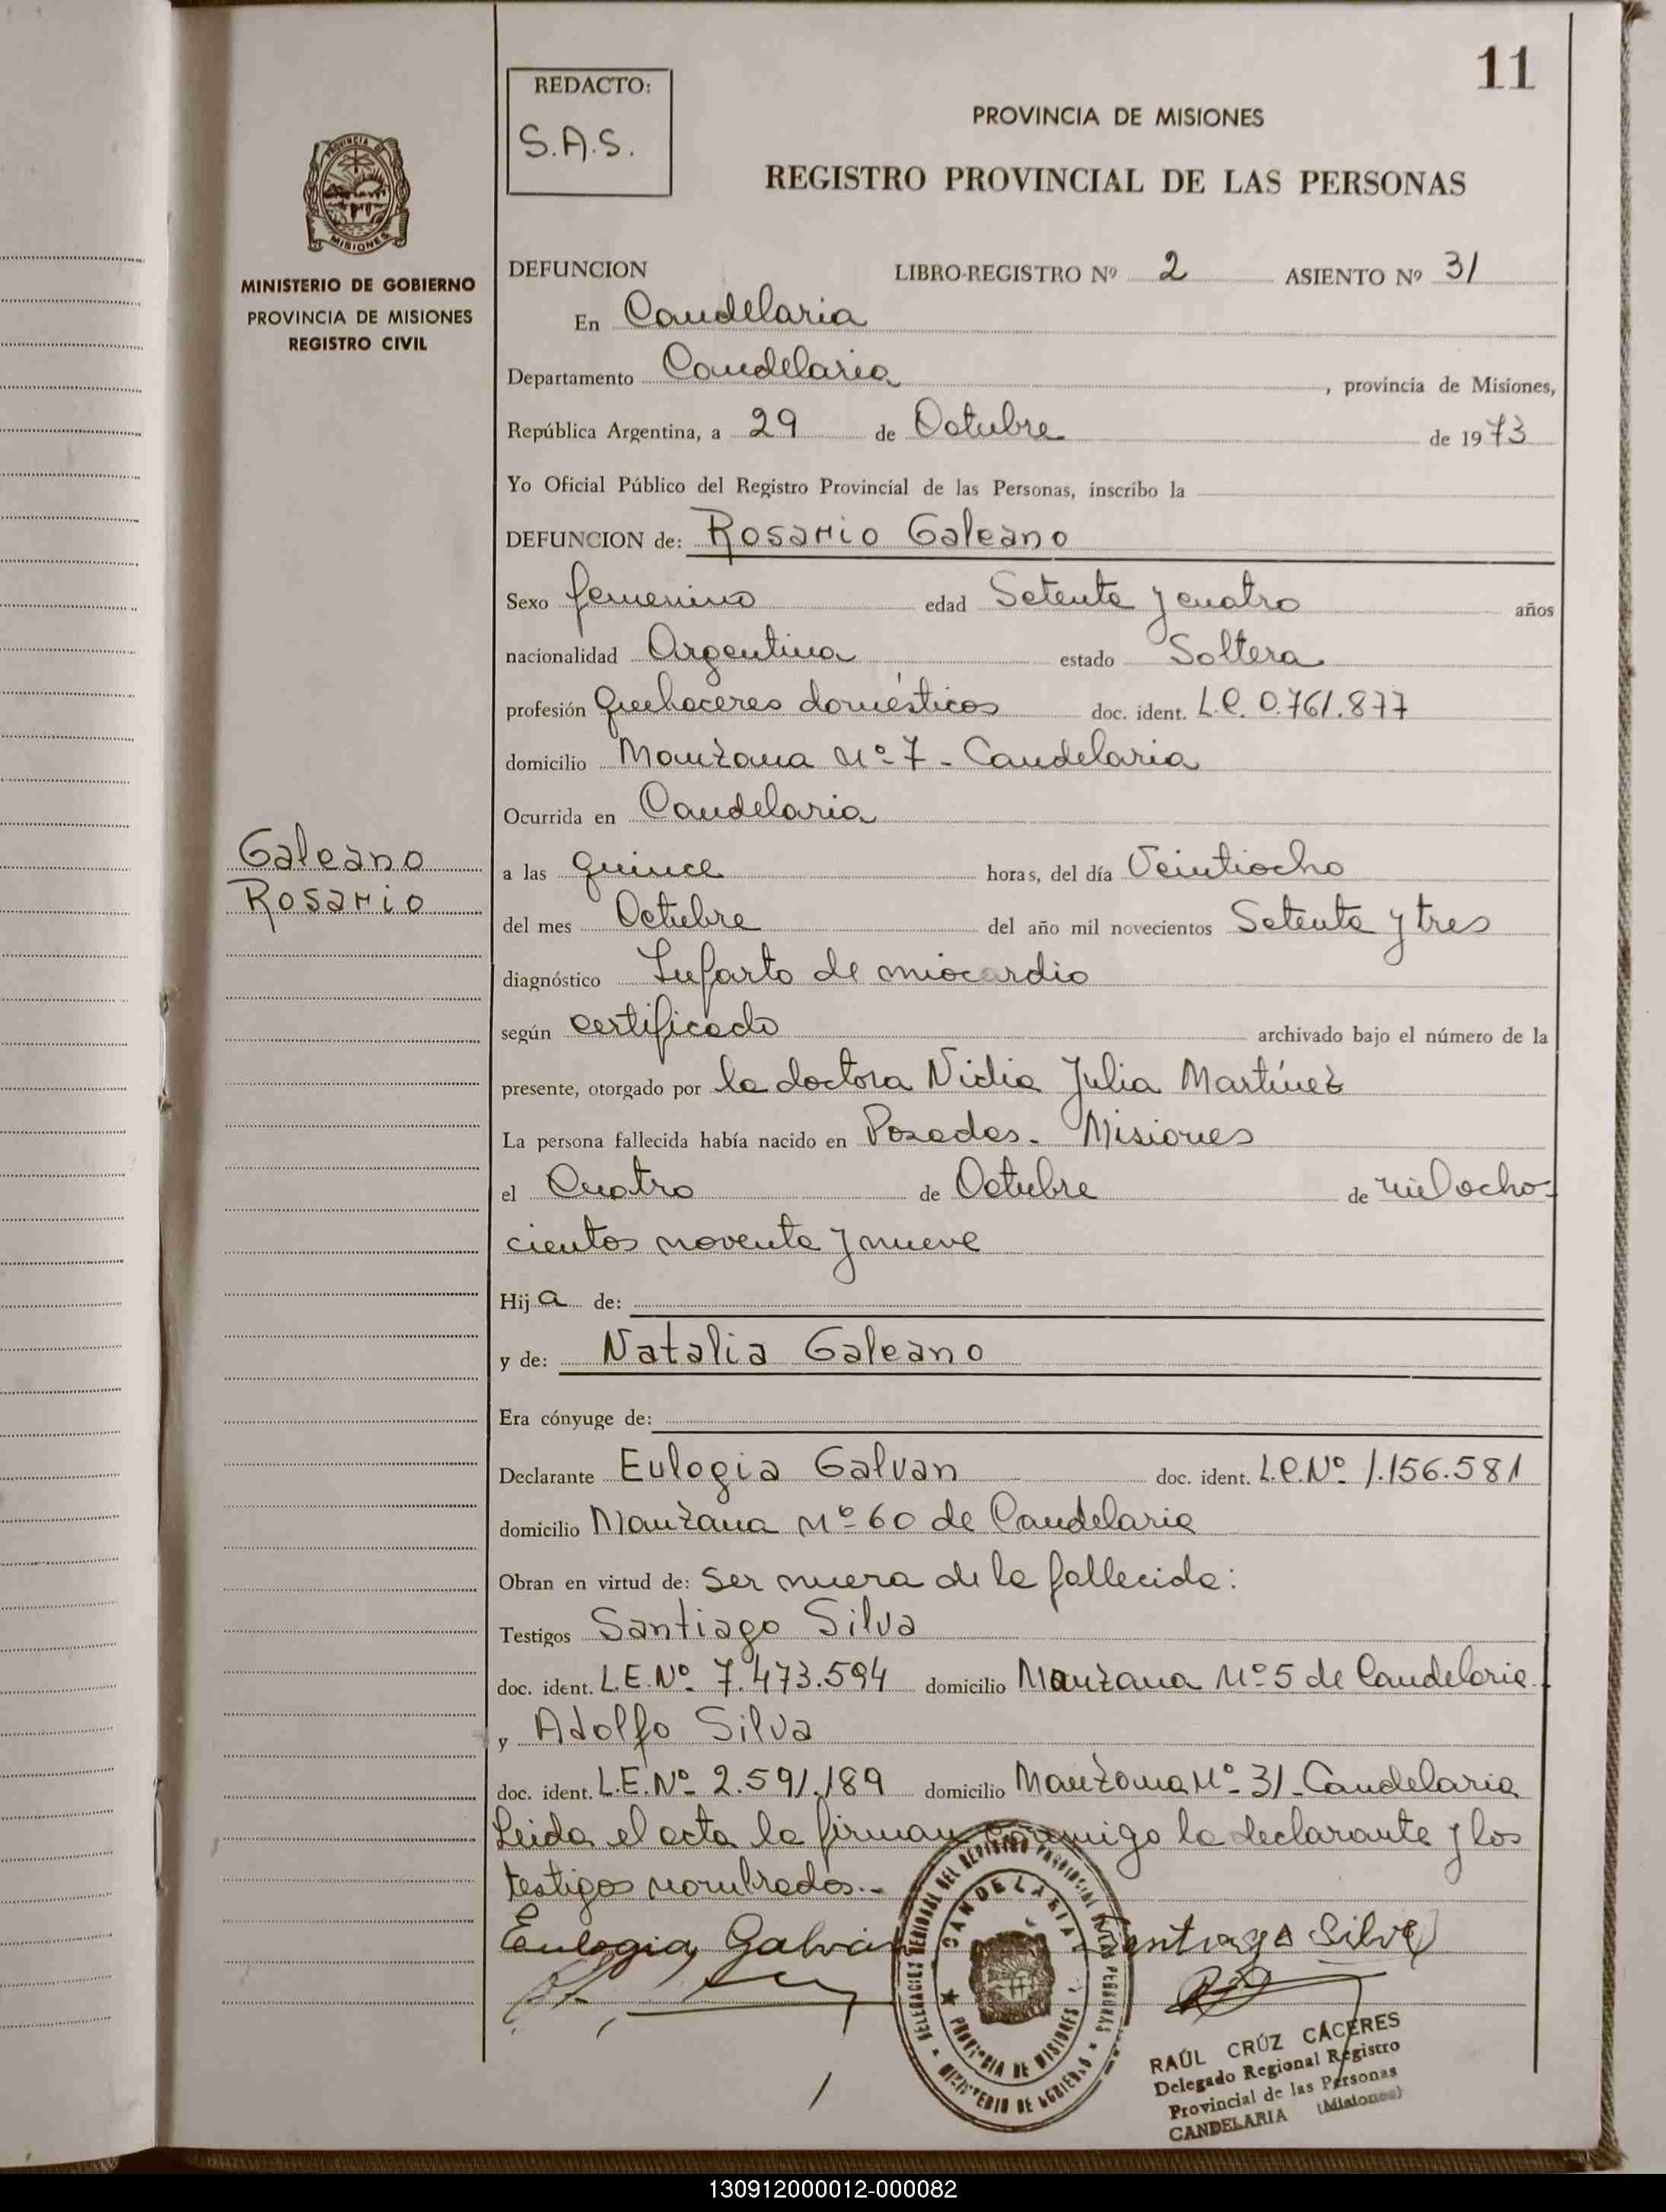 11
REDACTO:
S.A.S.
PROVINCIA DE MISIONES
REGISTRO PROVINCIAL DE LAS PERSONAS
PROVINCIA DE
MISIONES
MINISTERIO DE GOBIERNO
PROVINCIA DE MISIONES
REGISTRO CIVIL
DEFUNCION LIBRO-REGISTRO Nº 2 ASIENTO Nº 31
En Candelaria
Departamento Candelaria, provincia de Misiones,
República Argentina, a 29 de Octubre de 1973
Yo Oficial Público del Registro Provincial de las Personas, inscribo la
DEFUNCION de: Rosario Galeano
Sexo femenino edad Setenta y cuatro años
nacionalidad Argentina estado Soltera
profesión Quehaceres domésticos doc. ident. L.C. 0.761.877
domicilio Manzana Nº 7 - Candelaria
Ocurrida en Candelaria
Galeano
Rosario
a las quince horas, del día Veintiocho
del mes Octubre del año mil novecientos Setenta y tres
diagnóstico Infarto de miocardio
según certificado archivado bajo el número de la
presente, otorgado por la doctora Nidia Julia Martínez
La persona fallecida había nacido en Posadas - Misiones
el Cuatro de Octubre de mil ocho-
cientos noventa y nueve
Hija de:
y de: Natalia Galeano
Era cónyuge de:
Declarante Eulogia Galvan doc. ident. L.C.Nº 1.156.581
domicilio Manzana Nº 60 de Candelaria
Obran en virtud de: Ser nuera de la fallecida:
Testigos Santiago Silva
doc. ident. L.E.Nº 7.473.594 domicilio Manzana Nº 5 de Candelaria.
y Adolfo Silva
doc. ident. L.E.Nº 2.591.189 domicilio Manzana Nº 31 - Candelaria
Leida el acta la firman conmigo la declarante y los
testigos nombrados.-
Eulogia Galván Santiago Silva
DELEGACION REGIONAL DEL REGISTRO PROVINCIAL DE LAS PERSONAS
CANDELARIA
PROVINCIA DE MISIONES
MINISTERIO DE GOBIERNO
RAÚL CRÚZ CÁCERES
Delegado Regional Registro
Provincial de las Personas
CANDELARIA (Misiones)
130912000012-000082